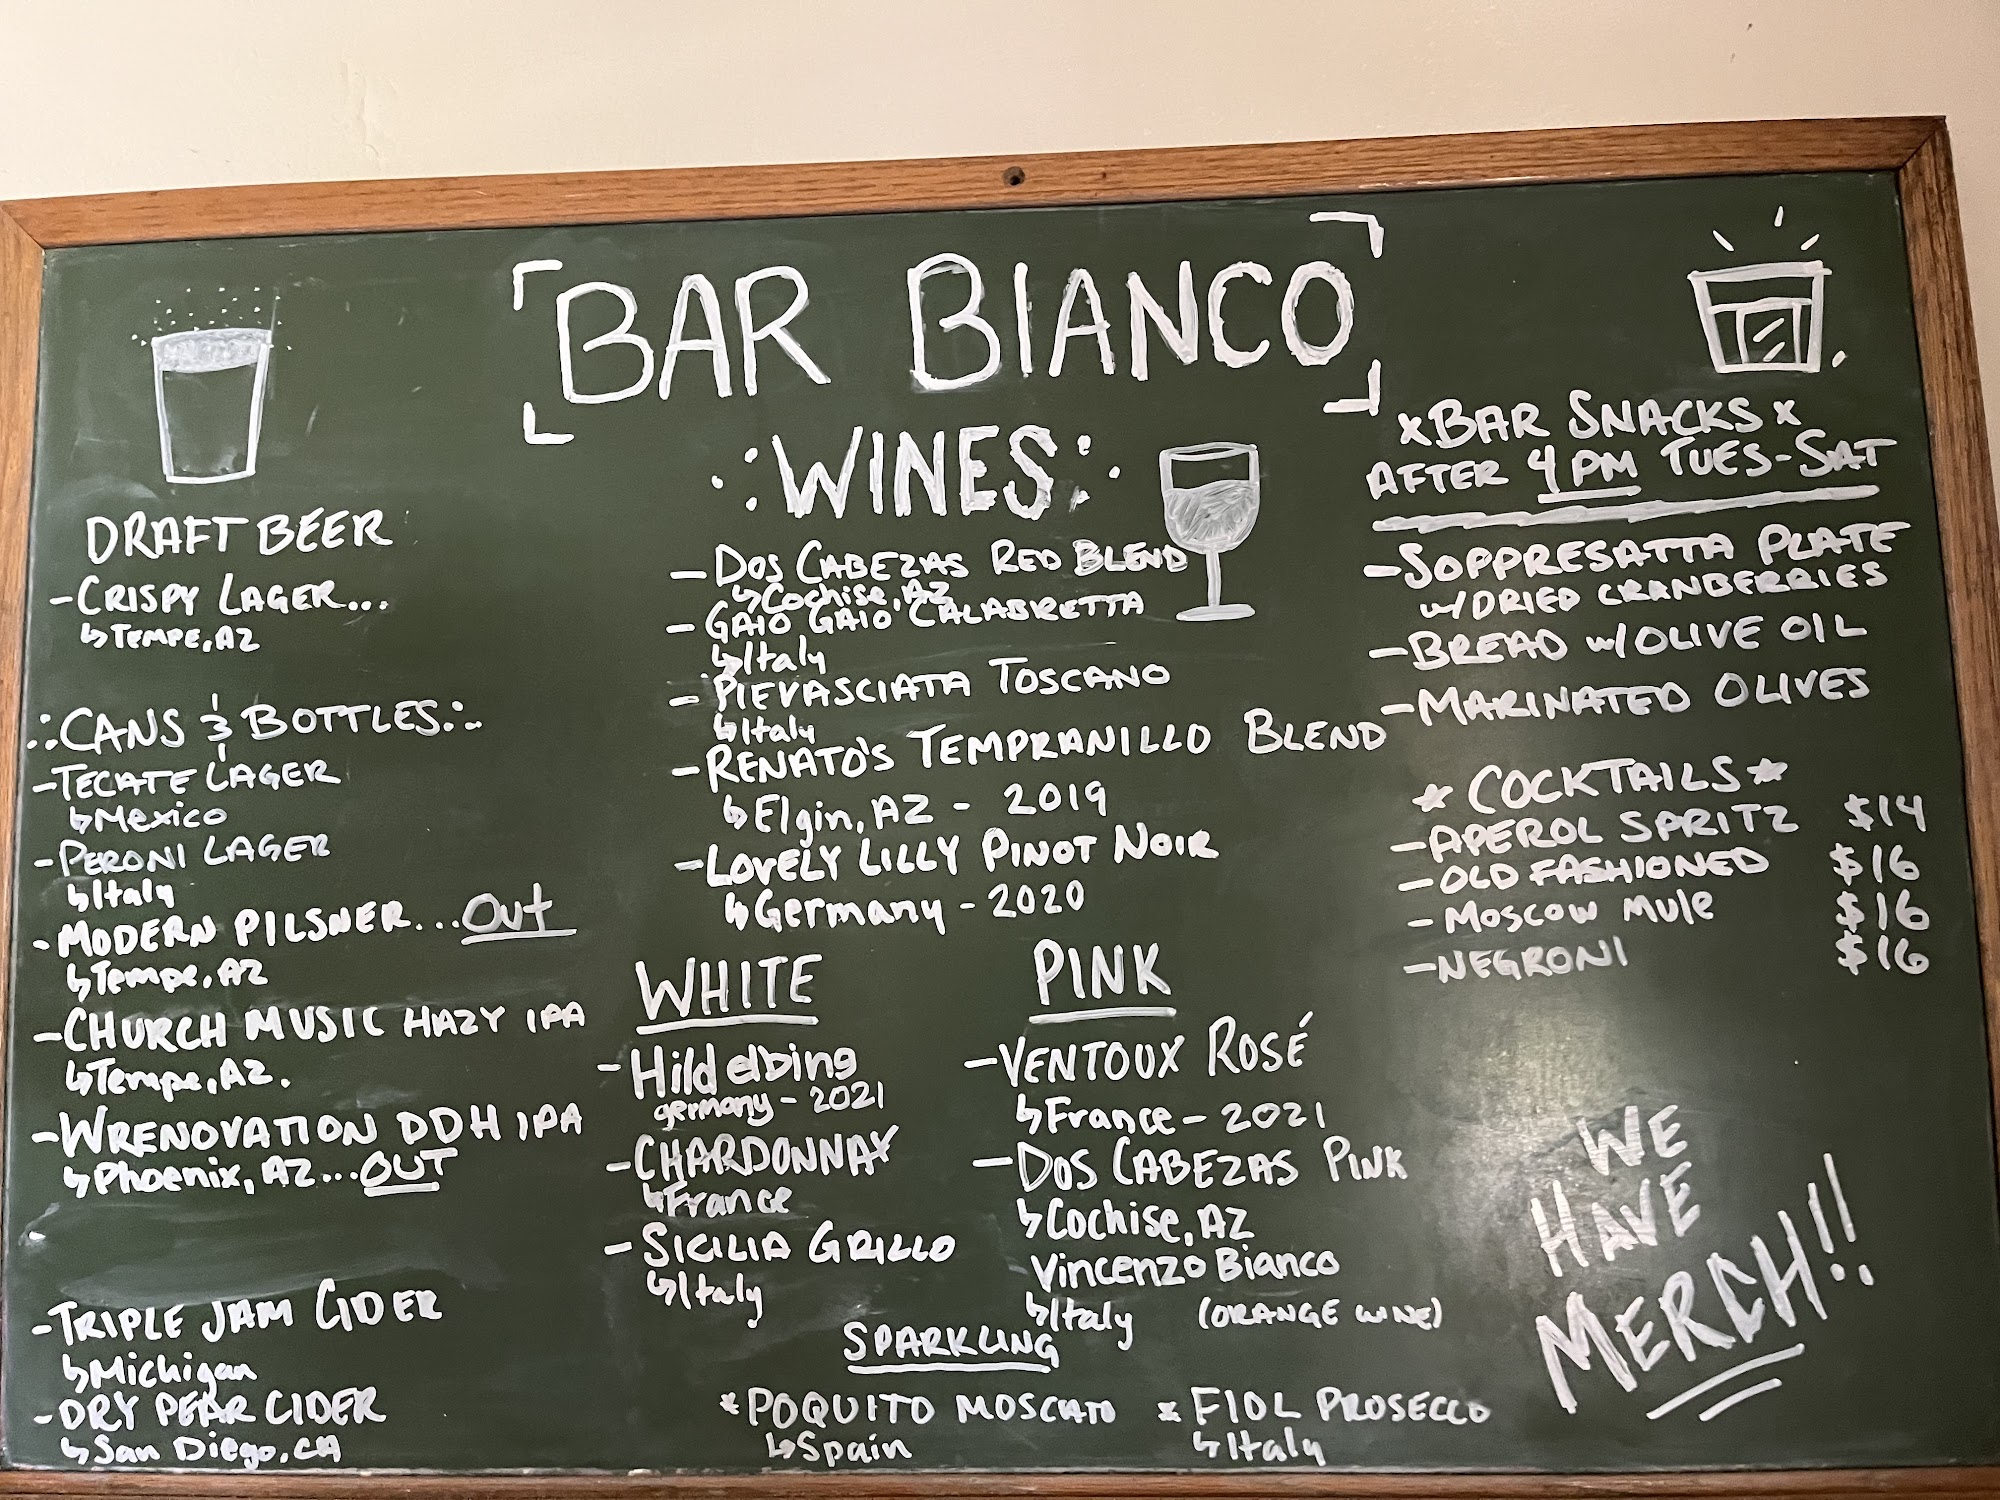 BAR BIANCO
DRAFT BEER
-CRISPY LAGER...
↳TEMPE, AZ
CANS & BOTTLES
-TECATE LAGER
↳Mexico
-PERONI LAGER
↳Italy
-MODERN PILSNER...Out
↳Tempe, AZ
-CHURCH MUSIC HAZY IPA
↳Tempe, AZ.
-WRENOVATION DDH IPA
↳Phoenix, AZ...OUT
-TRIPLE JAM CIDER
↳Michigan
-DRY PEAR CIDER
↳San Diego, CA
WINES
-DOS CABEZAS RED BLEND
↳Cochise, AZ
-GAIO GAIO CALABRETTA
↳Italy
-PIEVASCIATA TOSCANO
↳Italy
-RENATO'S TEMPRANILLO BLEND
↳Elgin, AZ - 2019
-LOVELY LILLY PINOT NOIR
↳Germany - 2020
WHITE
-Hild elbing
germany - 2021
-CHARDONNAY
↳France
-SICILIA GRILLO
↳Italy
PINK
-VENTOUX ROSÉ
↳France - 2021
-DOS CABEZAS PINK
↳Cochise, AZ
Vincenzo Bianco
↳Italy (ORANGE WINE)
SPARKLING
*POQUITO MOSCATO
↳Spain
*FIOL PROSECCO
↳Italy
xBAR SNACKSx
AFTER 4PM TUES-SAT
-SOPPRESATTA PLATE
w/DRIED CRANBERRIES
-BREAD w/OLIVE OIL
-MARINATED OLIVES
*COCKTAILS*
-APEROL SPRITZ $14
-OLD FASHIONED $16
-MOSCOW MULE $16
-NEGRONI $16
WE
HAVE
MERCH!!